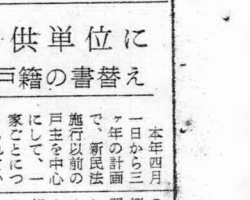 供単位に
戸籍の書替え
本年四月
一日から三
ヶ年の計画
で、新民法
施行以前の
戸主を中心
にして、一
家ごとにつ